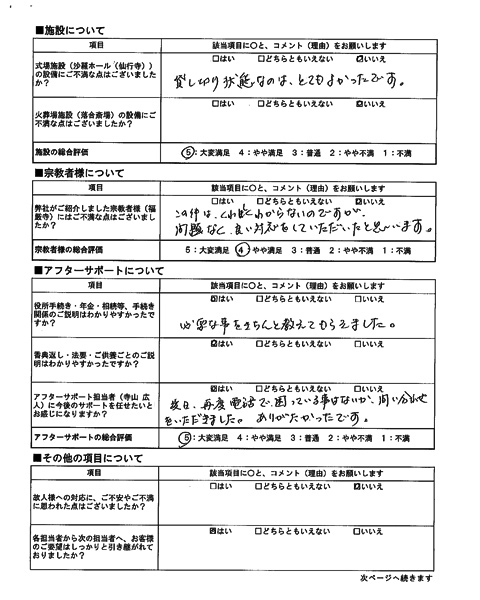 ■施設について
項目 該当項目に○と、コメント(理由)をお願いします
式場施設(沙羅ホール(仙行寺))の設備にご不満な点はございましたか?
□はい □どちらともいえない ☑いいえ
貸し切り状態なのは、とてもよかったです。
火葬場施設(落合斎場)の設備にご不満な点はございましたか?
□はい □どちらともいえない ☑いいえ
施設の総合評価 ⑤:大変満足 4:やや満足 3:普通 2:やや不満 1:不満
■宗教者様について
項目 該当項目に○と、コメント(理由)をお願いします
弊社がご紹介しました宗教者様(福厳寺)にはご不満な点はございましたか?
□はい □どちらともいえない ☑いいえ
この件は、くわしくわからないのですが、
問題なく、良い対応をしていただいたと思います。
宗教者様の総合評価 5:大変満足 ④:やや満足 3:普通 2:やや不満 1:不満
■アフターサポートについて
項目 該当項目に○と、コメント(理由)をお願いします
役所手続き・年金・相続等、手続き関係のご説明はわかりやすかったですか?
☑はい □どちらともいえない □いいえ
必要な事をきちんと教えてもらえました。
香典返し・法要・ご供養ごとのご説明はわかりやすかったですか?
☑はい □どちらともいえない □いいえ
アフターサポート担当者(寺山 広人)に今後のサポートを任せたいとお感じになりますか?
☑はい □どちらともいえない □いいえ
後日、再度電話で困っている事はないか、問い合わせ
をいただきました。ありがたかったです。
アフターサポートの総合評価 ⑤:大変満足 4:やや満足 3:普通 2:やや不満 1:不満
■その他の項目について
項目 該当項目に○と、コメント(理由)をお願いします
故人様への対応に、ご不安やご不満に思われた点はございましたか?
□はい □どちらともいえない ☑いいえ
各担当者から次の担当者へ、お客様のご要望はしっかりと引き継がれておりましたか?
☑はい □どちらともいえない □いいえ
次ページへ続きます